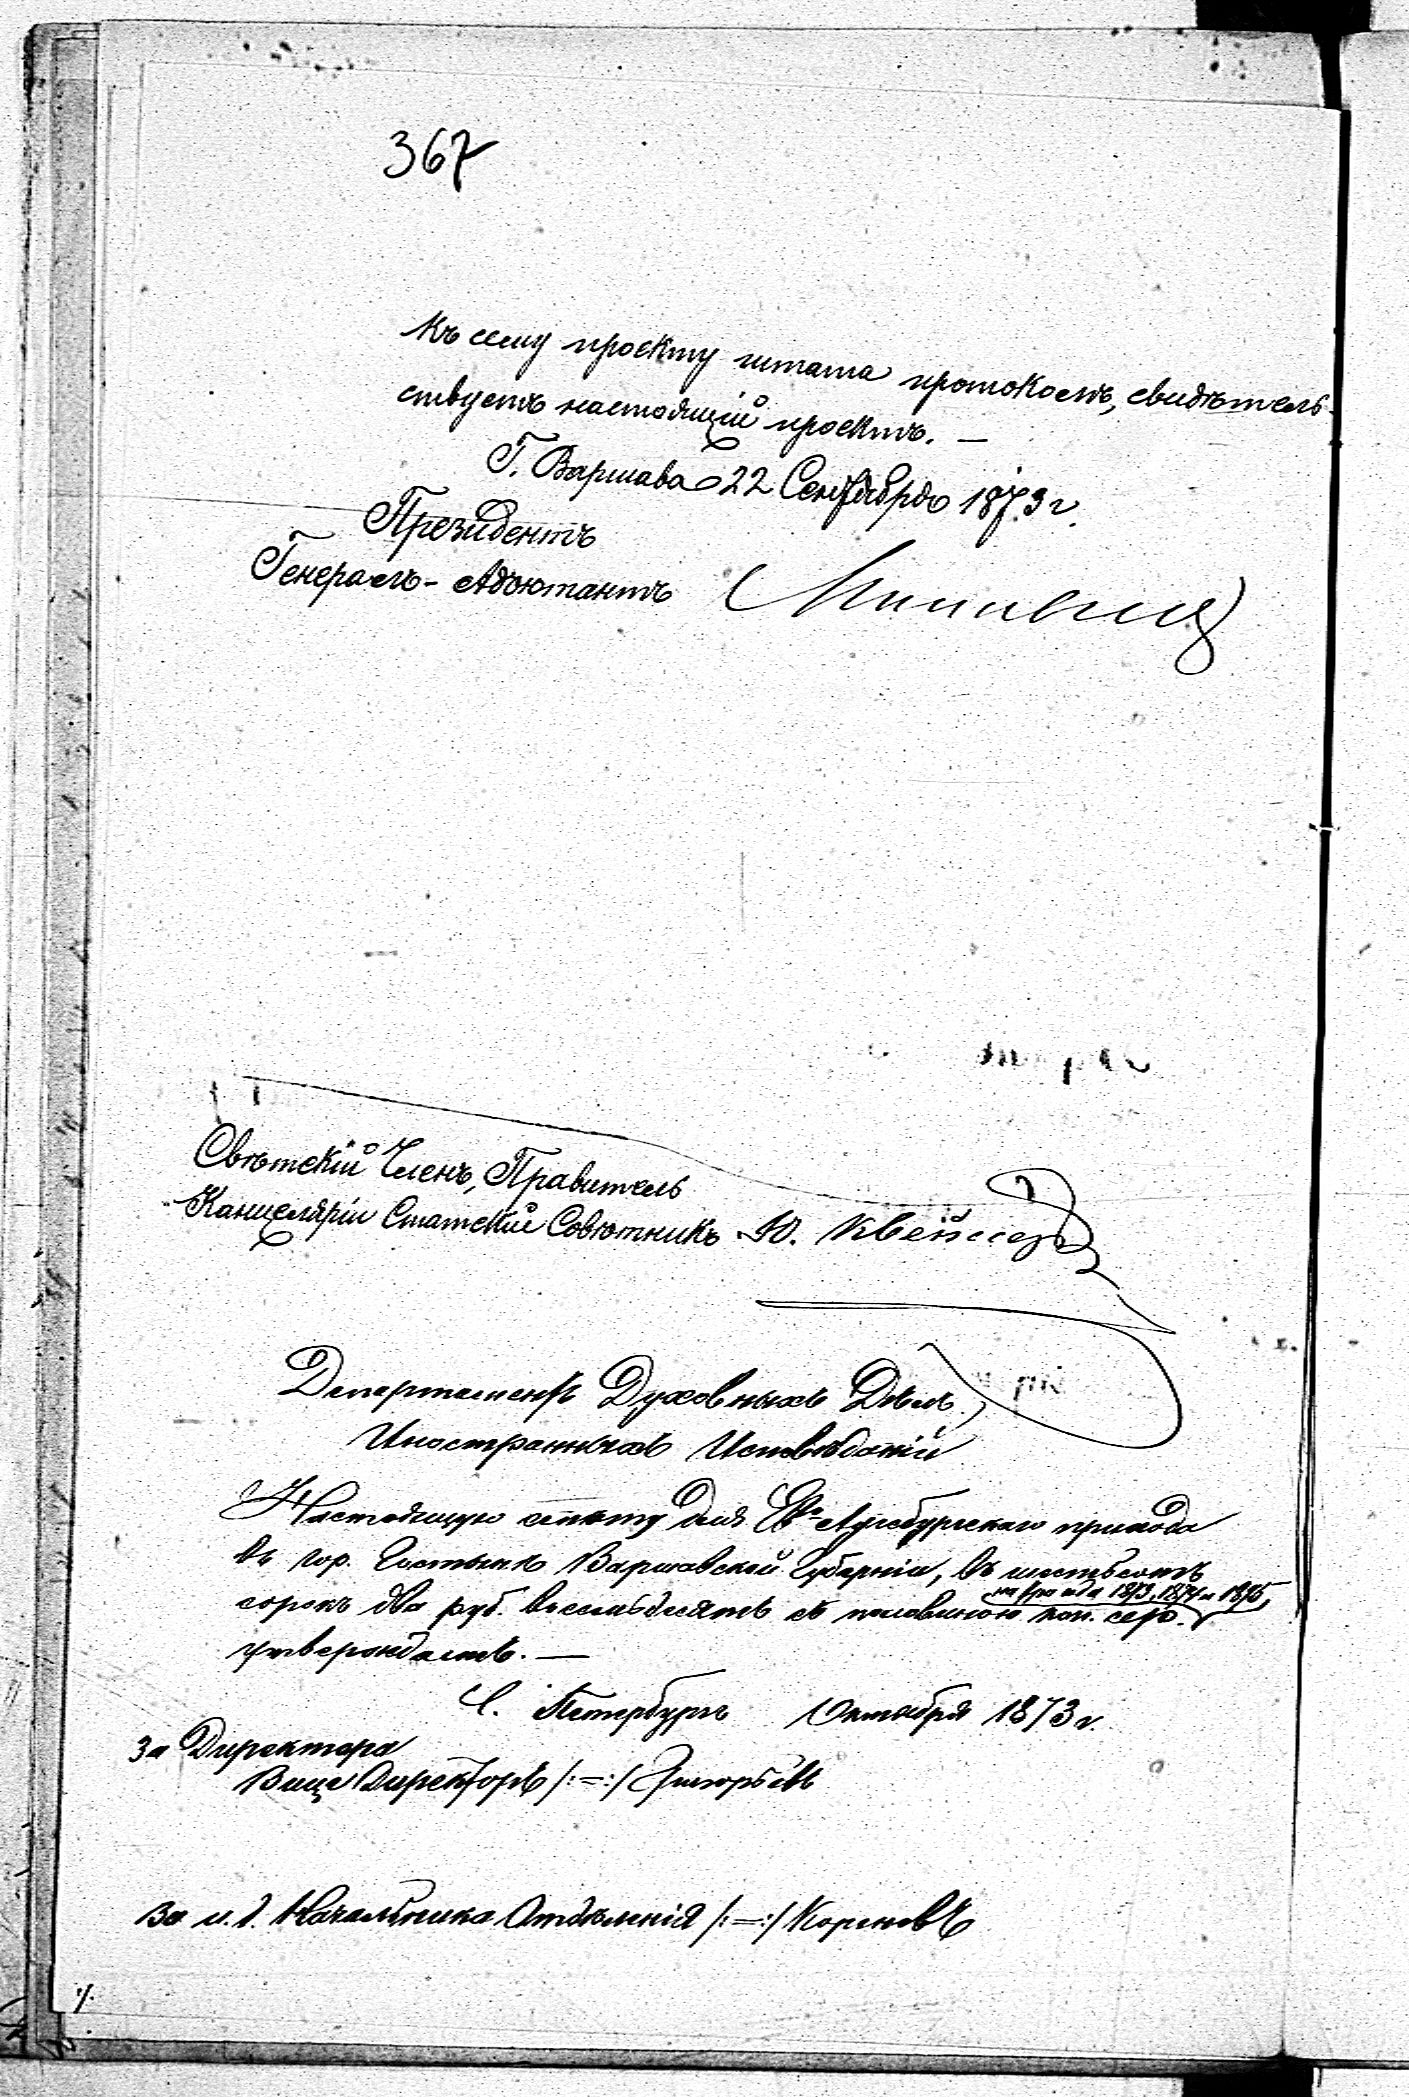 367
Къ сему проекту штата протоколъ, свидѣтель-
ствуетъ настоящій проектъ. —
Г. Варшава 22 Сентября 1873 г.
Президентъ
Генералъ-Адъютантъ
Свѣтскій Членъ, Правитель
Канцеляріи Статскій Совѣтникъ Ю.
Департаментъ Духовныхъ Дѣлъ
Иностранныхъ Исповѣданій
Настоящую смѣту для Ев-Аугсбургскаго прихода
въ гор. Гостынинѣ Варшавской Губерніи, въ шестьсотъ
на 1873, 1874 и 1875
сорокъ два руб. восемьдесятъ съ половиною коп. сер.
утверждаетъ. —
С. Петербургъ Октября 1873 г.
За Директора
Вице Директоръ /:=:/
За и. д. Начальника Отдѣленія /:=:/ Кореневъ